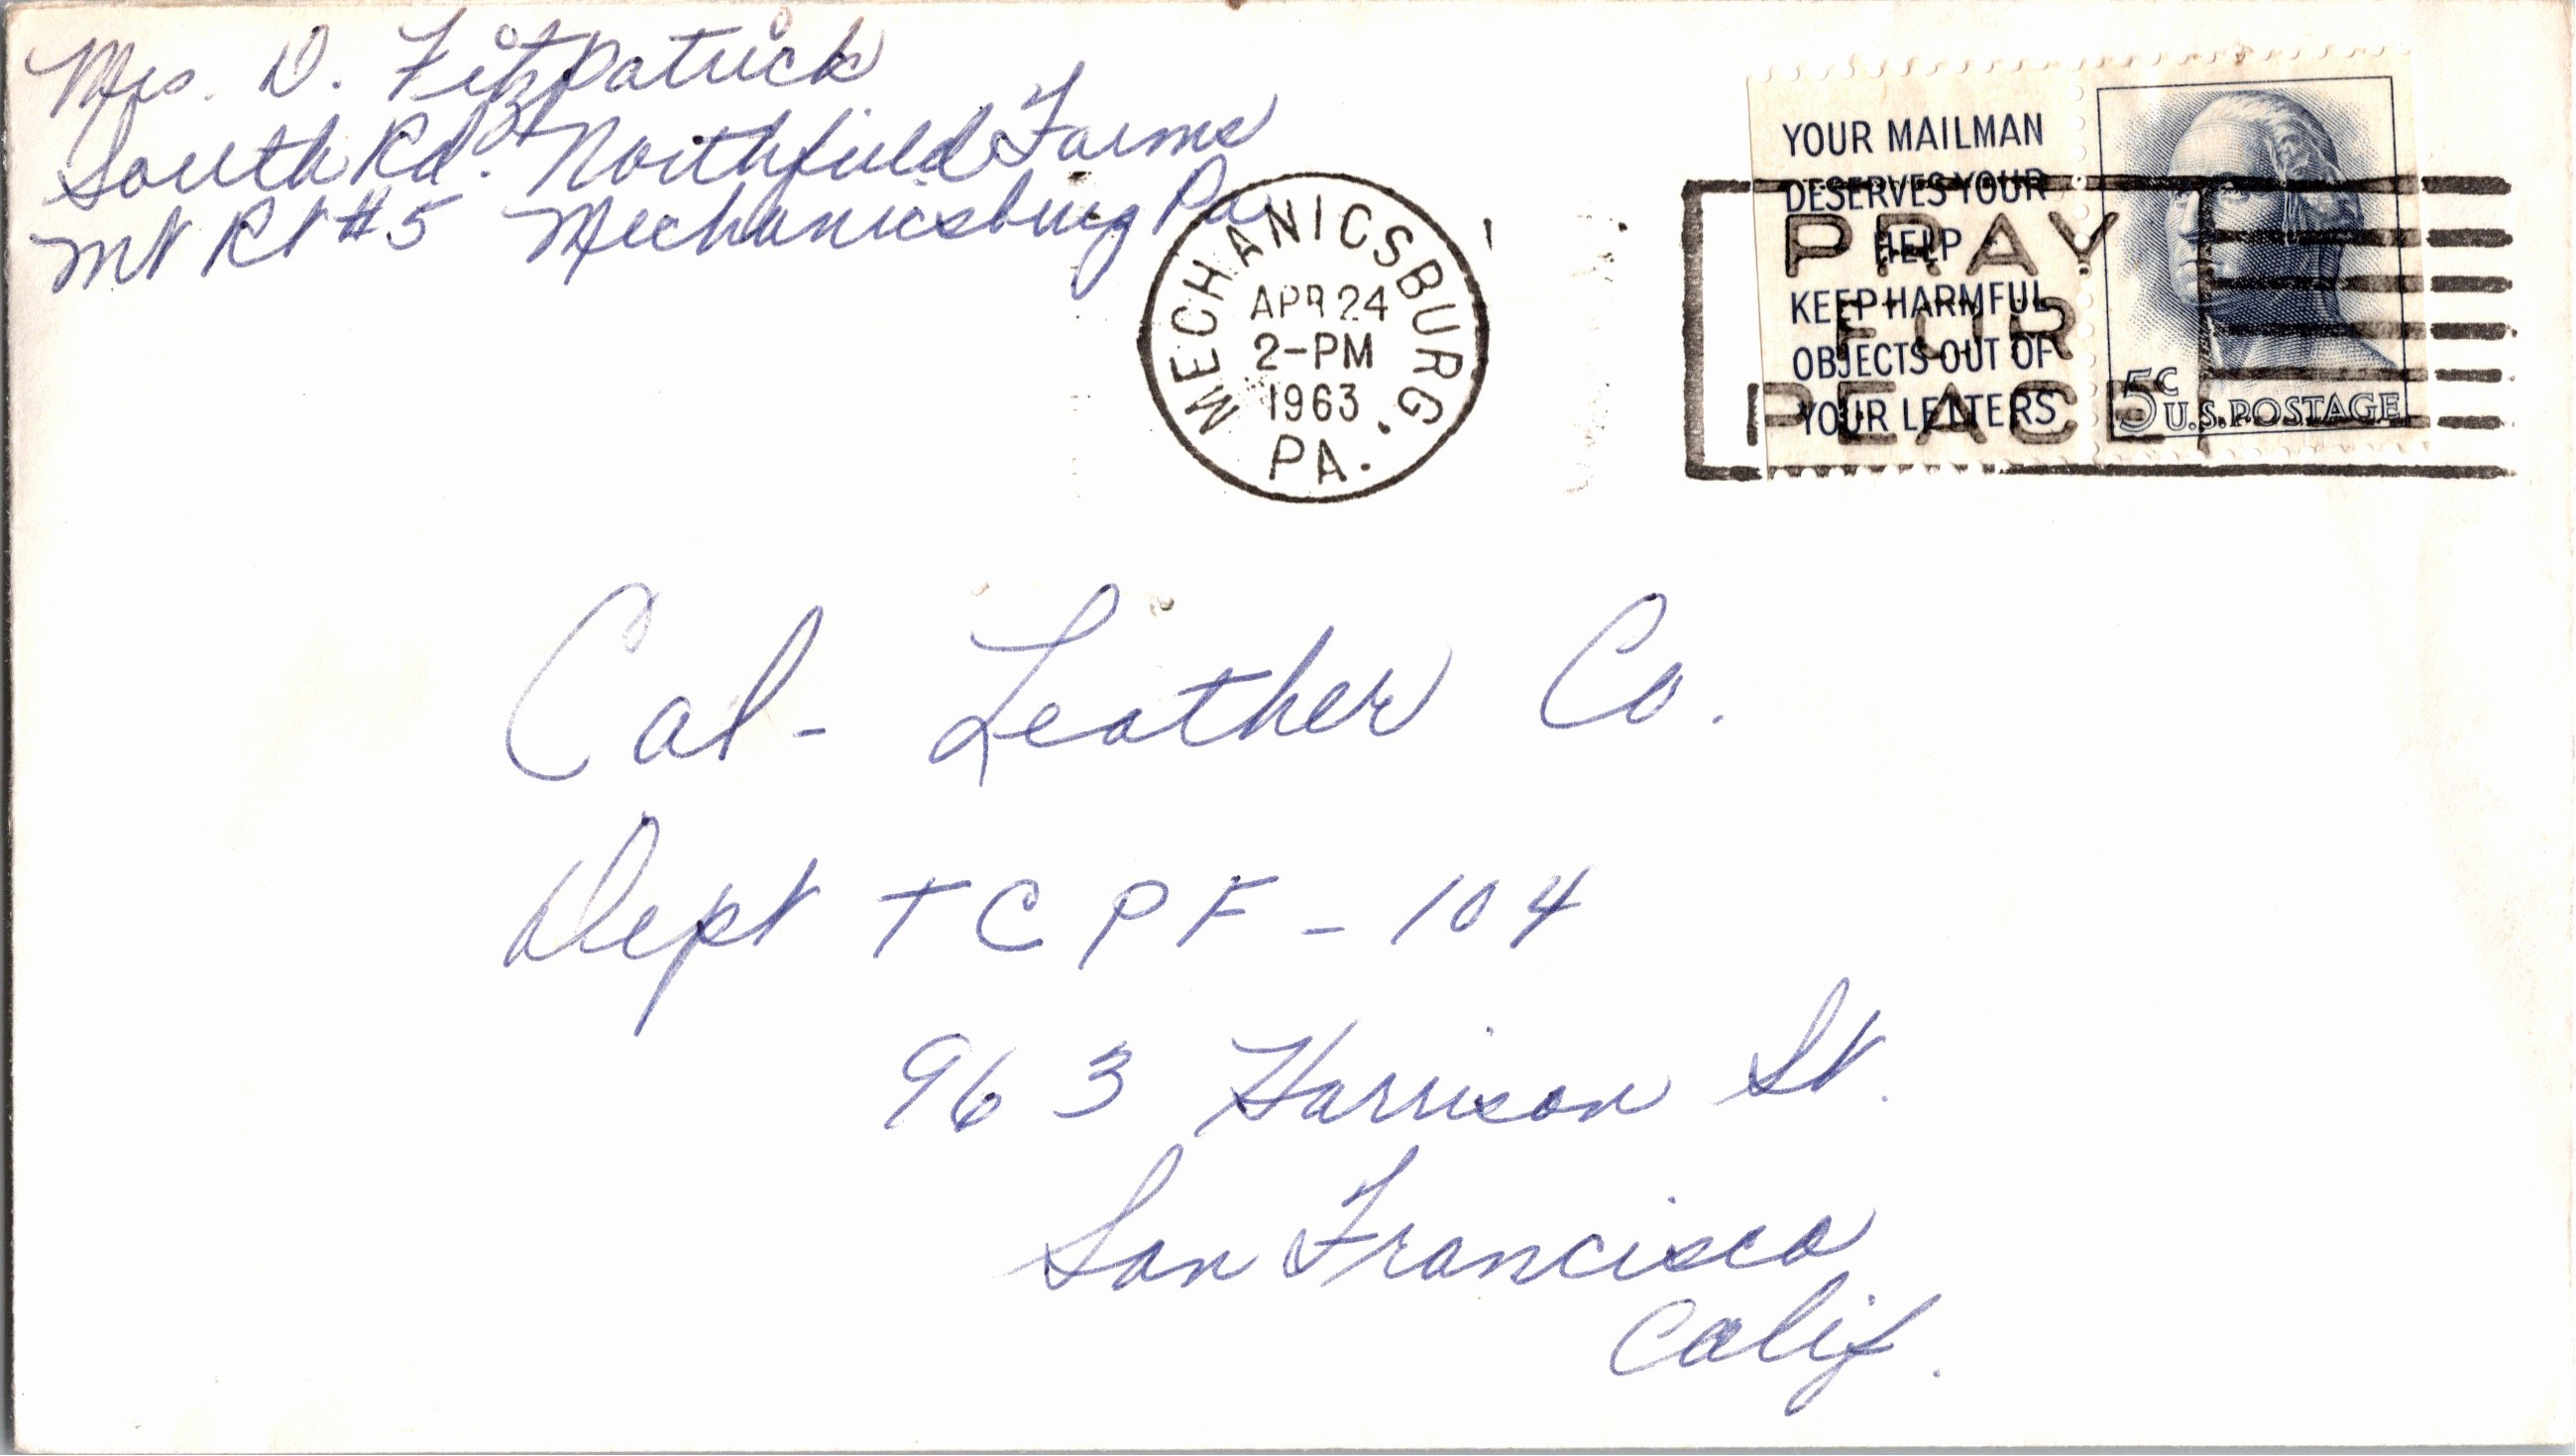 Mrs. D. FitzPatrick
South Rd. Northfield Farms
Mt Rt #5 Mechanicsburg Pa
MECHANICSBURG, PA.
APR 24
2-PM
1963
YOUR MAILMAN
DESERVES YOUR
HELP
KEEP HARMFUL
OBJECTS OUT OF
YOUR LETTERS
PRAY
FOR
PEACE
5c
U.S. POSTAGE
Cal- Leather Co.
Dept TCPF-104
963 Harrison St.
San Francisco
Calif.